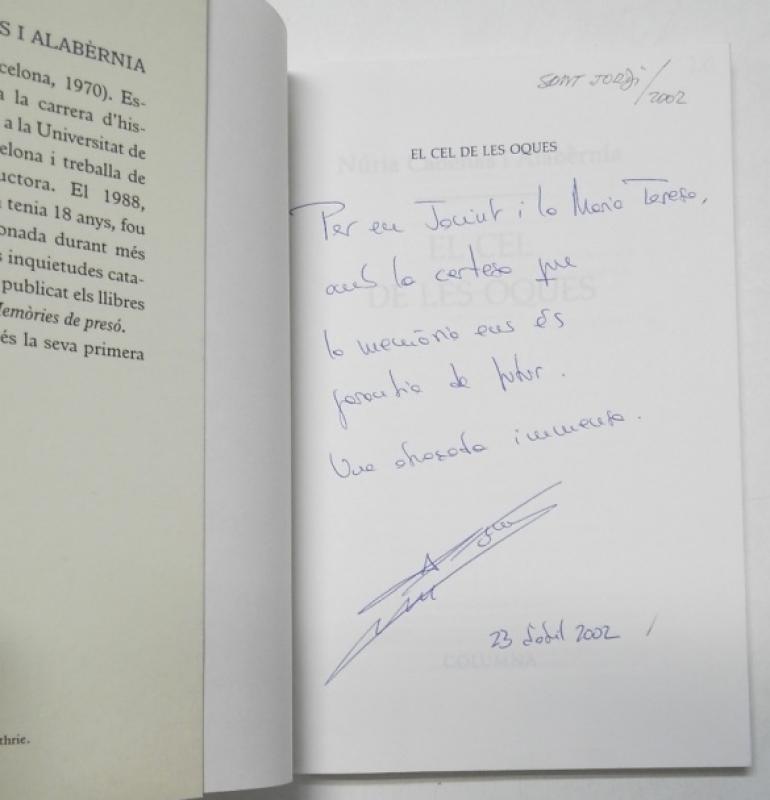 S I ALABÈRNIA
celona, 1970). Es-
a la carrera d'his-
a la Universitat de
elona i treballa de
uctora. El 1988,
tenia 18 anys, fou
onada durant més
s inquietudes cata-
publicat els llibres
Memòries de presó.
és la seva primera
thrie.
SANT JORDI/2002
EL CEL DE LES OQUES
Núria Cadenes i Alabèrnia
EL CEL
DE LES OQUES
Per en Jacint i la Maria Teresa,
amb la certesa que
la memòria ens és
garantia de futur.
Una abraçada immensa.
23 d'abril 2002
COLUMNA